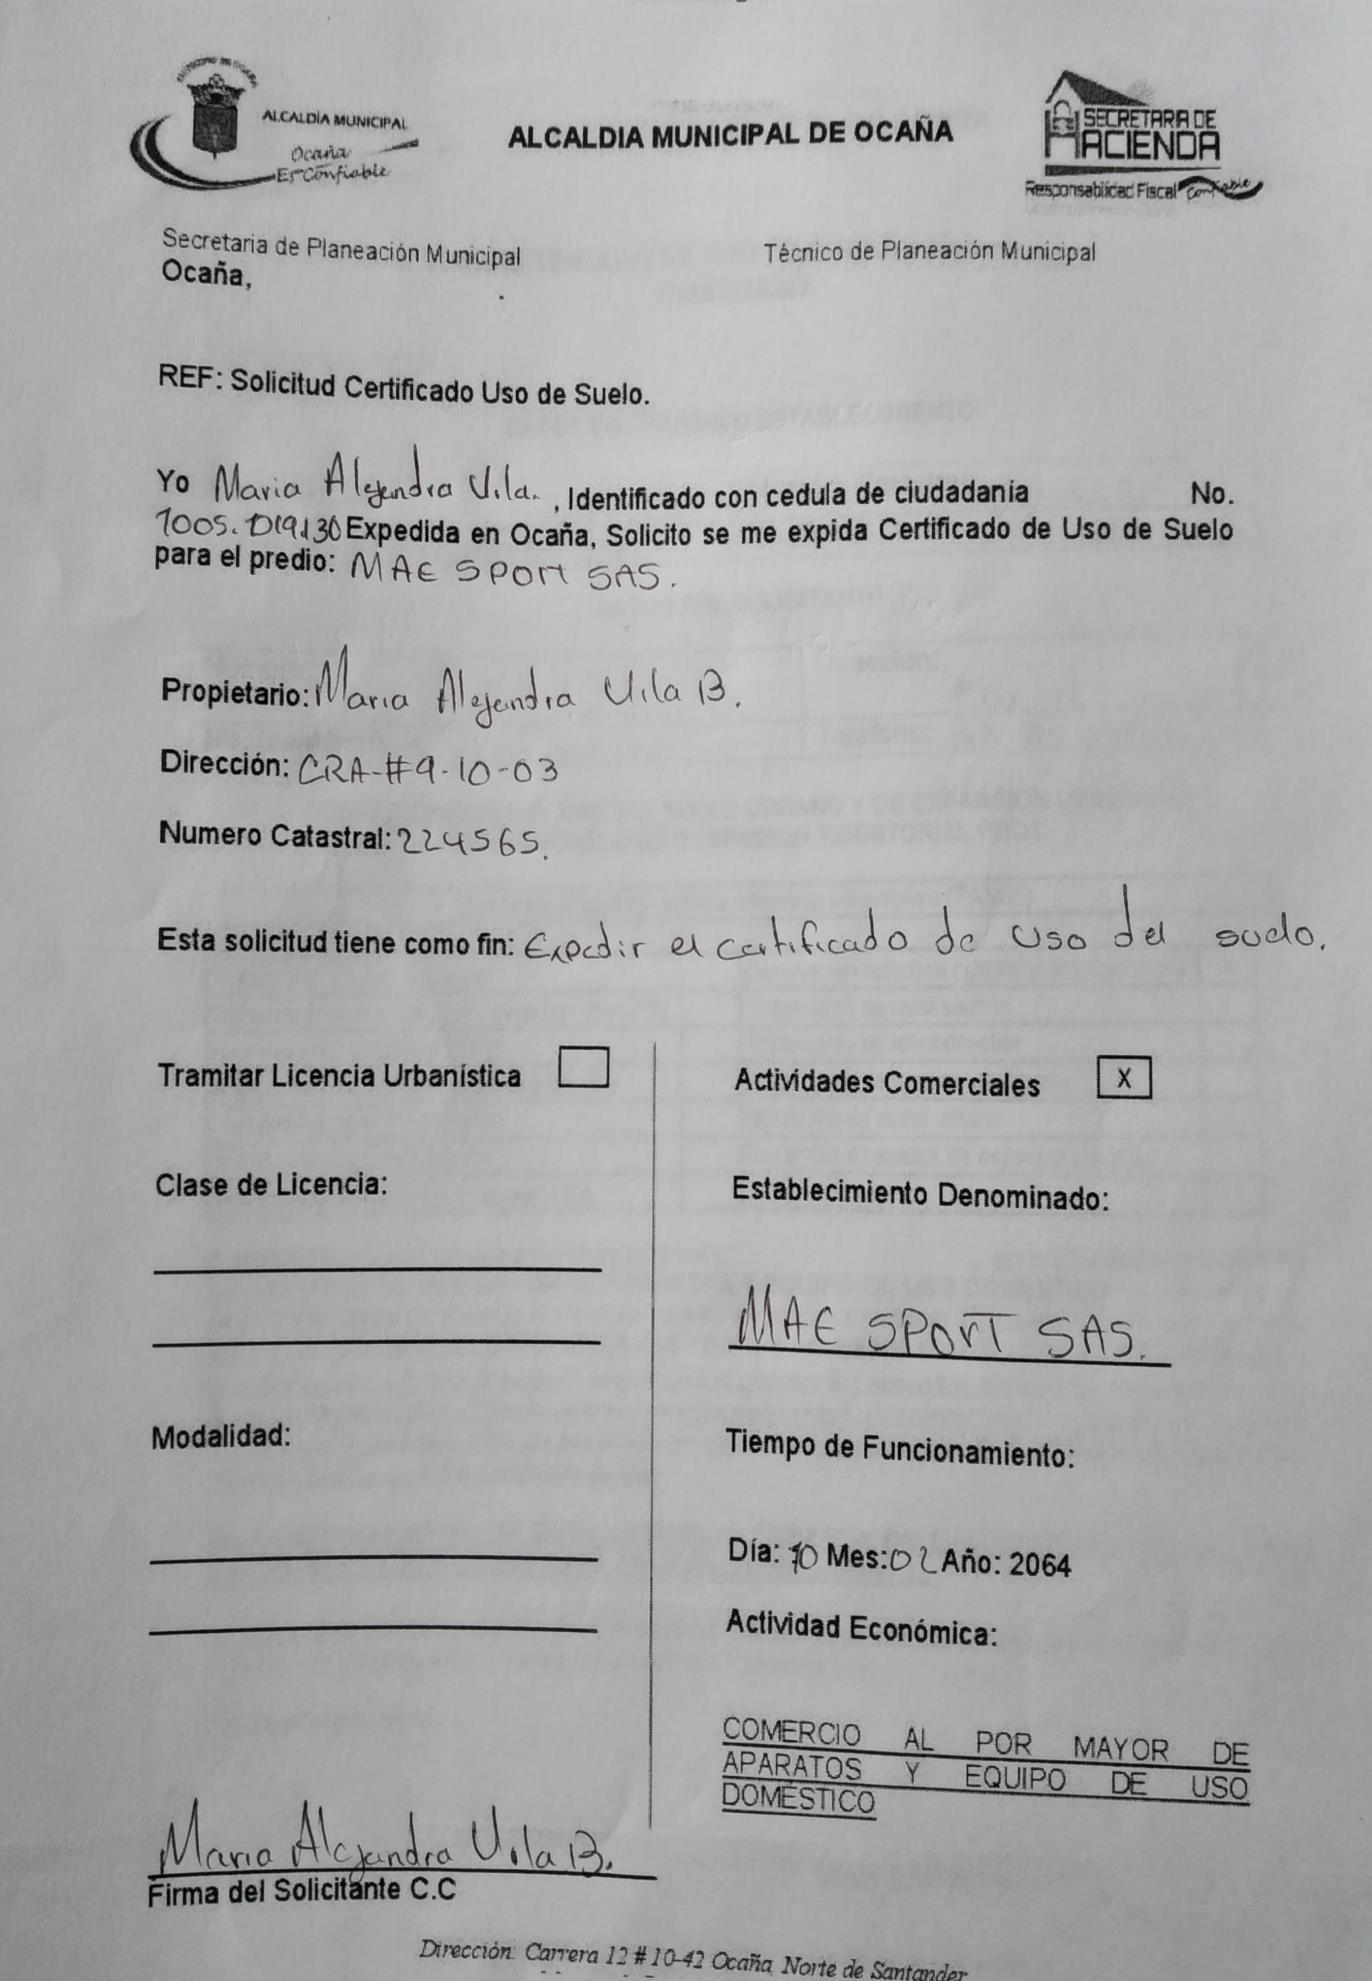 ALCALDÍA MUNICIPAL
Ocaña
Es Confiable
ALCALDIA MUNICIPAL DE OCAÑA
SECRETARA DE
HACIENDA
Responsabilidad Fiscal Confiable
Secretaria de Planeación Municipal
Técnico de Planeación Municipal
Ocaña,
REF: Solicitud Certificado Uso de Suelo.
Yo Maria Alejandra Vila. , Identificado con cedula de ciudadanía No.
Expedida en Ocaña, Solicito se me expida Certificado de Uso de Suelo
para el predio: MAE SPORT SAS.
Propietario: Maria Alejandra Vila B.
Dirección: CRA-#9-10-03
Numero Catastral: 224565.
Esta solicitud tiene como fin: Expedir el certificado de uso del suelo.
Tramitar Licencia Urbanística
Actividades Comerciales X
Clase de Licencia:
Establecimiento Denominado:
MAE SPORT SAS.
Modalidad:
Tiempo de Funcionamiento:
Día: 10 Mes: 02 Año: 2064
Actividad Económica:
COMERCIO AL POR MAYOR DE
APARATOS Y EQUIPO DE USO
DOMÉSTICO
Maria Alejandra Vila B.
Firma del Solicitante C.C
Dirección: Carrera 12 # 10-42 Ocaña Norte de Santander